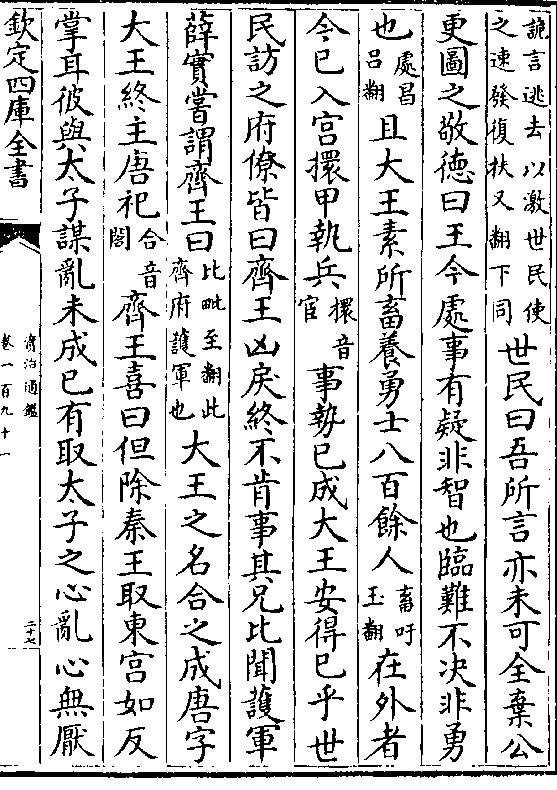 詭言逃去以激世民使
之速發復扶又翻下同
世民曰吾所言亦未可全棄公
更圖之敬德曰王今處事有疑非智也臨難不決非勇
也
處昌
吕翻
且大王素所畜養勇士八百餘人
畜吁
玉翻
在外者
今已入宫擐甲執兵
擐音
官
事勢已成大王安得已乎世
民訪之府僚皆曰齊王凶戾終不肯事其兄比聞護軍
薛實嘗謂齊王曰
比毗至翻此
齊府護軍也
大王之名合之成唐字
大王終主唐祀
合音
閤
齊王喜曰但除秦王取東宫如反
掌耳彼與太子謀亂未成已有取太子之心亂心無厭
欽定四庫全書
資治通鑑
卷一百九十一
二十七